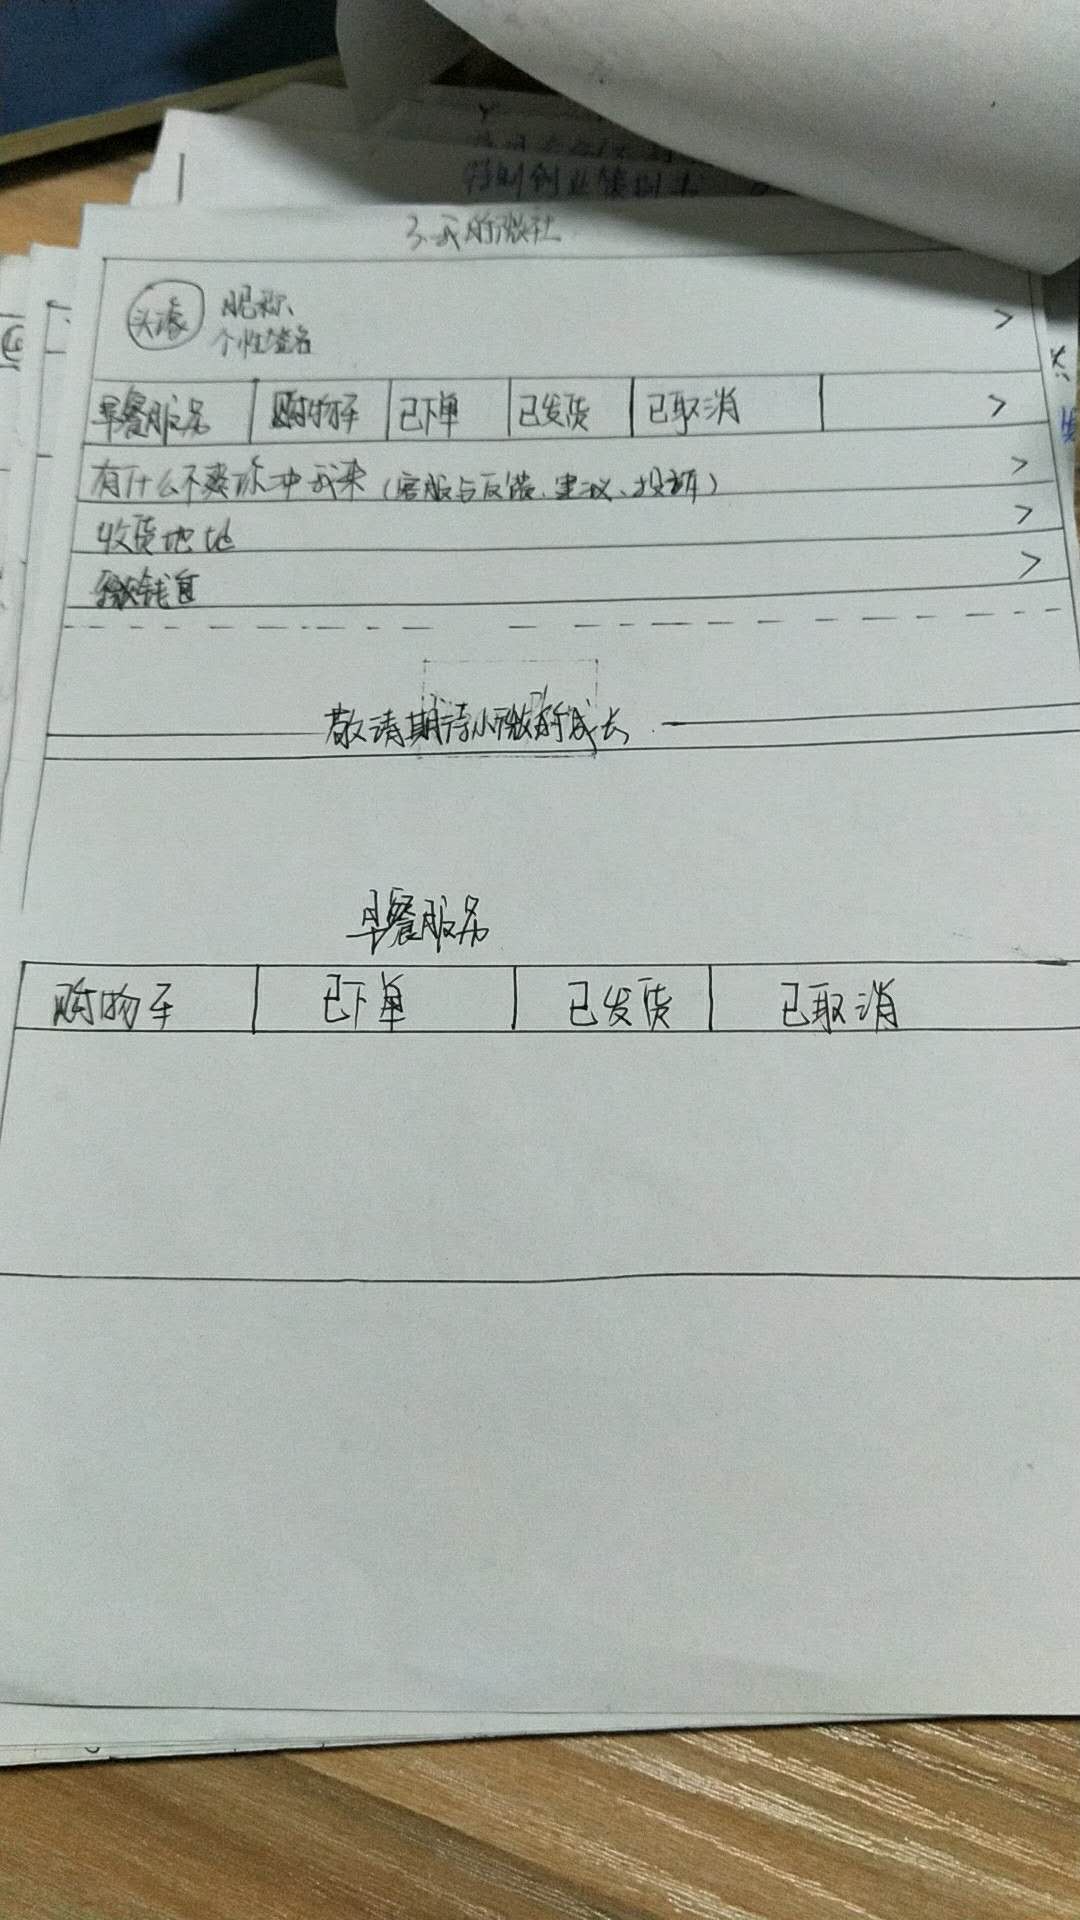 3.我的微社
头像
昵称
个性签名
>
早餐服务 购物车 已下单 已发货 已取消 >
有什么不爽你冲我来（客服与反馈、建议、投诉） >
收货地址 >
钱包 >
敬请期待小微的成长
早餐服务
购物车 已下单 已发货 已取消